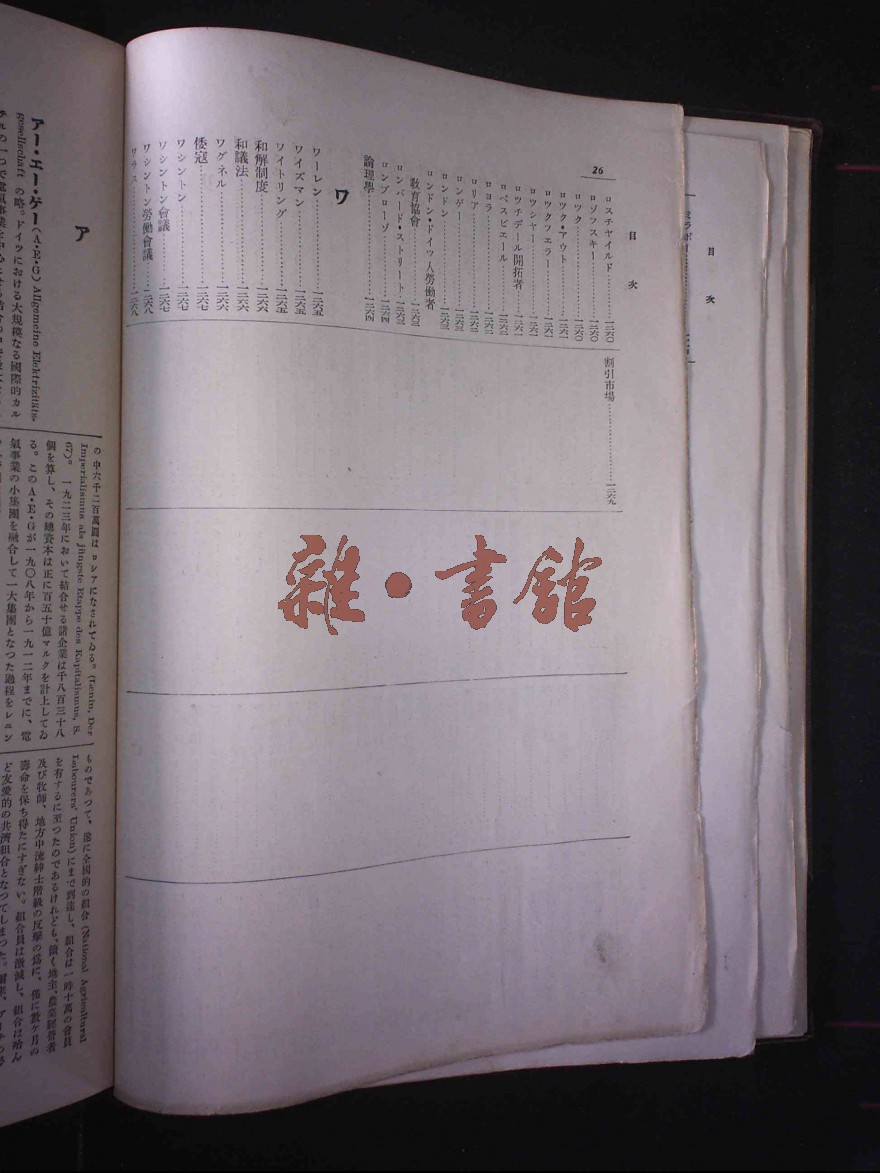 26
目次
ロスチヤイルド…………一二六〇
ロゾフスキー…………一二六〇
ロツク…………一二六〇
ロツク・アウト…………一二六一
ロツクフエラー…………一二六一
ロツシヤー…………一二六一
ロツチデール開拓者…………一二六一
ロベスピエール…………一二六二
ロヨラ…………一二六二
ロリア…………一二六二
ロンゲー…………一二六三
ロンドン…………一二六三
ロンドン・ドイツ人勞働者
敎育協會…………一二六三
ロンバード・ストリート…………一二六三
ロンブローゾ…………一二六四
論理學…………一二六四
ワ
ワーレン…………一二六五
ワイズマン…………一二六五
ワイトリング…………一二六五
和解制度…………一二六六
和議法…………一二六六
ワグネル…………一二六六
倭寇…………一二六七
ワシントン…………一二六七
ワシントン會議…………一二六七
ワシントン勞働會議…………一二六八
ワラス…………一二六八
割引市場…………一二六九
目次
雜・書館
ア
アー・エー・ゲー(A・E・G) Allgemeine Elektrizitäts-
gesellschaft の略。ドイツにおける大規模なる國際的カル
Imperialismus als jüngste Etappe des Kapitalismus, S.
67)。一九二三年において結合せる諸企業は千八百三十八
個を算し、その總資本は正に百五十億マルクを計上してゐ
る。このA・E・Gが一九〇八年から一九一二年までに、電
氣事業の小集團を融合して一大集團となつた過程をレニン
ものであつて、遂に全國的の組合 (National Agricultural
Labourers' Union)にまで到達し、組合は一時十萬の會員
を有するに至つたのであるけれども、續く地主、農業經營者
及び牧師、地方中流紳士階級の反擊の爲に、僅に數ヶ月の
壽命を保ち得たにすぎない。組合員は激減し、組合は殆ん
ど友愛的の共濟組合となつてしまつた。